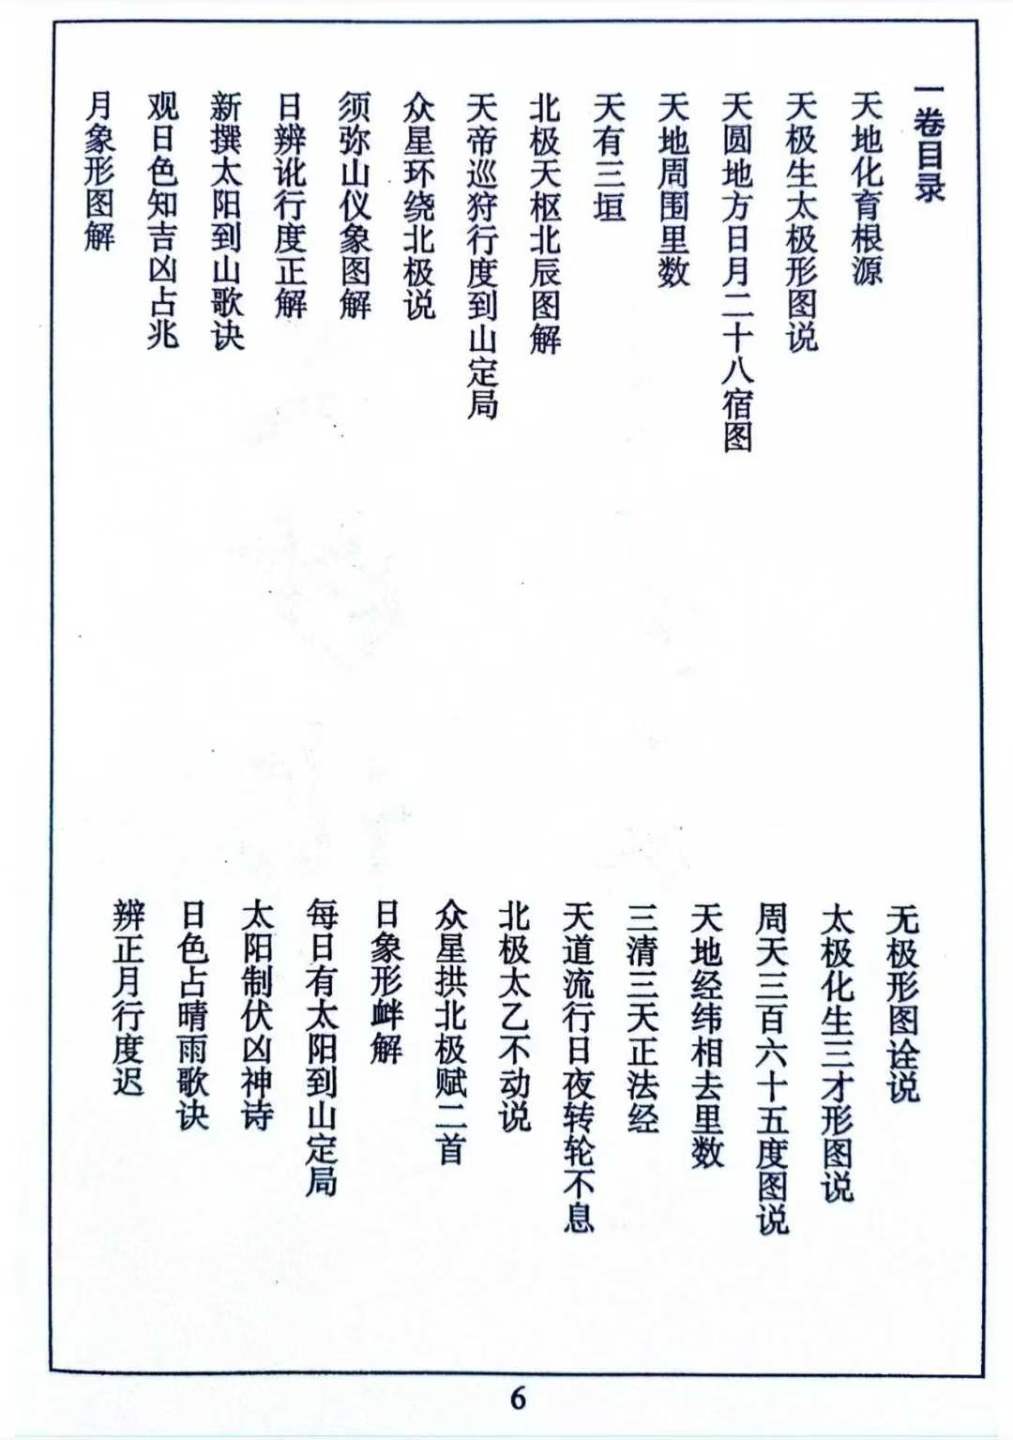 一卷目录
天地化育根源
天极生太极形图说
天圆地方日月二十八宿图
天地周围里数
天有三垣
北极天枢北辰图解
天帝巡狩行度到山定局
众星环绕北极说
须弥山仪象图解
日辨讹行度正解
新撰太阳到山歌诀
观日色知吉凶占兆
月象形图解
无极形图诠说
太极化生三才形图说
周天三百六十五度图说
天地经纬相去里数
三清三天正法经
天道流行日夜转轮不息
北极太乙不动说
众星拱北极赋二首
日象形衅解
每日有太阳到山定局
太阳制伏凶神诗
日色占晴雨歌诀
辨正月行度迟
6